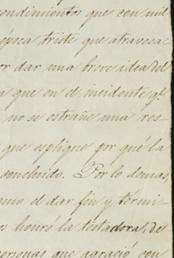 ondimientos que con mil
época triste que atravesa
or dar una breve idea del
a que en el incidente q.e
no se estrañe una res-
que esplique por qué la
concluido. Por lo demas
omo el dar fin y térmi-
s honró la testadora, de
ersonas que agració con